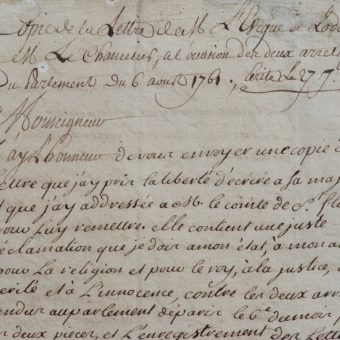 Copie de la Lettre de M L'Evêque de Lod
M. Le Chancelier, a l'occasion des deux arrets
Du Parlement du 6 aoust 1761., Ecrite Le 27 7
Monseigneur
J'ay L'honneur de vous envoyer une copie d
que j'ay pris la liberté d'écrire a sa maj
que j'ay addressée a M. le comte de St. flo
pour Luy remettre. elle contient une juste
éclamation que je dois a mon état, à mon a
pour La religion et pour le roy, a la justice,
erité et à L'innocence, contre les deux arr
rendus au parlement de paris le 6e du mois
en deux pieces, et L'enregistrement des Lettr